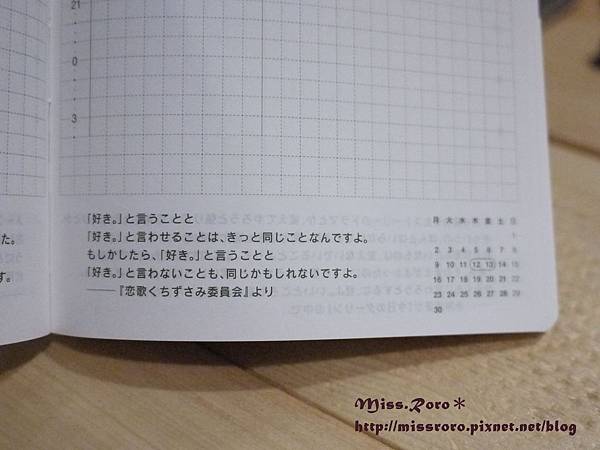 21
0
3
「好き。」と言うことと
「好き。」と言わせることは、きっと同じことなんですよ。
もしかしたら、「好き。」と言うことと
「好き。」と言わないことも、同じかもしれないですよ。
――『恋歌くちずさみ委員会』より
た。
す。
月 火 水 木 金 土 日
1
2 3 4 5 6 7 8
9 10 11 12 13 14 15
16 17 18 19 20 21 22
23 24 25 26 27 28 29
30
Miss.Roro*
http://missroro.pixnet.net/blog